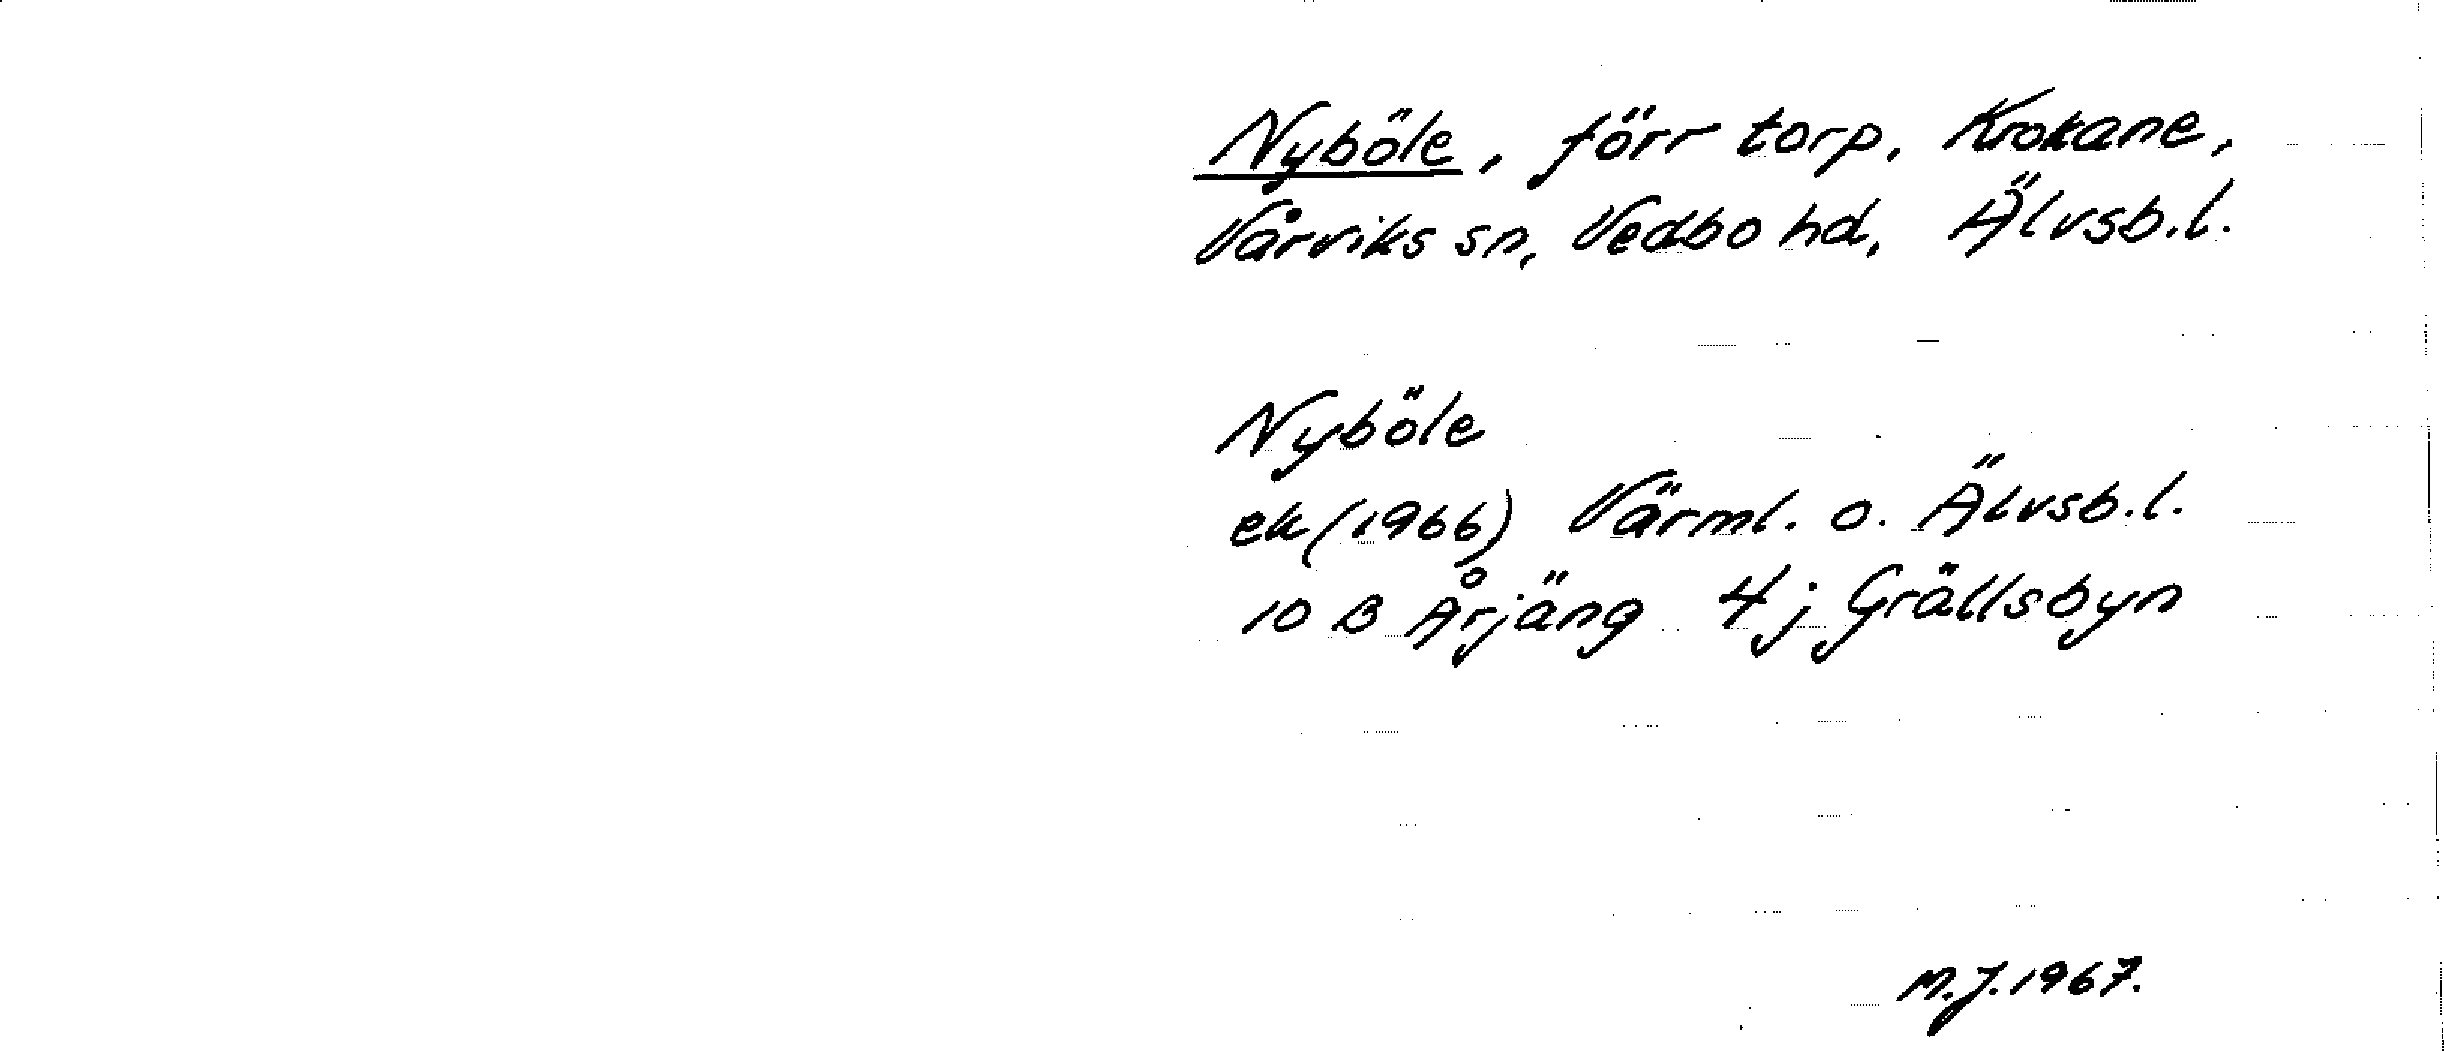 Nyböle, förr torp, Krokane,
Vårviks sn, Vedbo hd, Älvsb.l.
Nyböle
ek (1966) Värml. o. Älvsb.l.
10 B Årjäng 4j Grällsbyn
M.J. 1967.